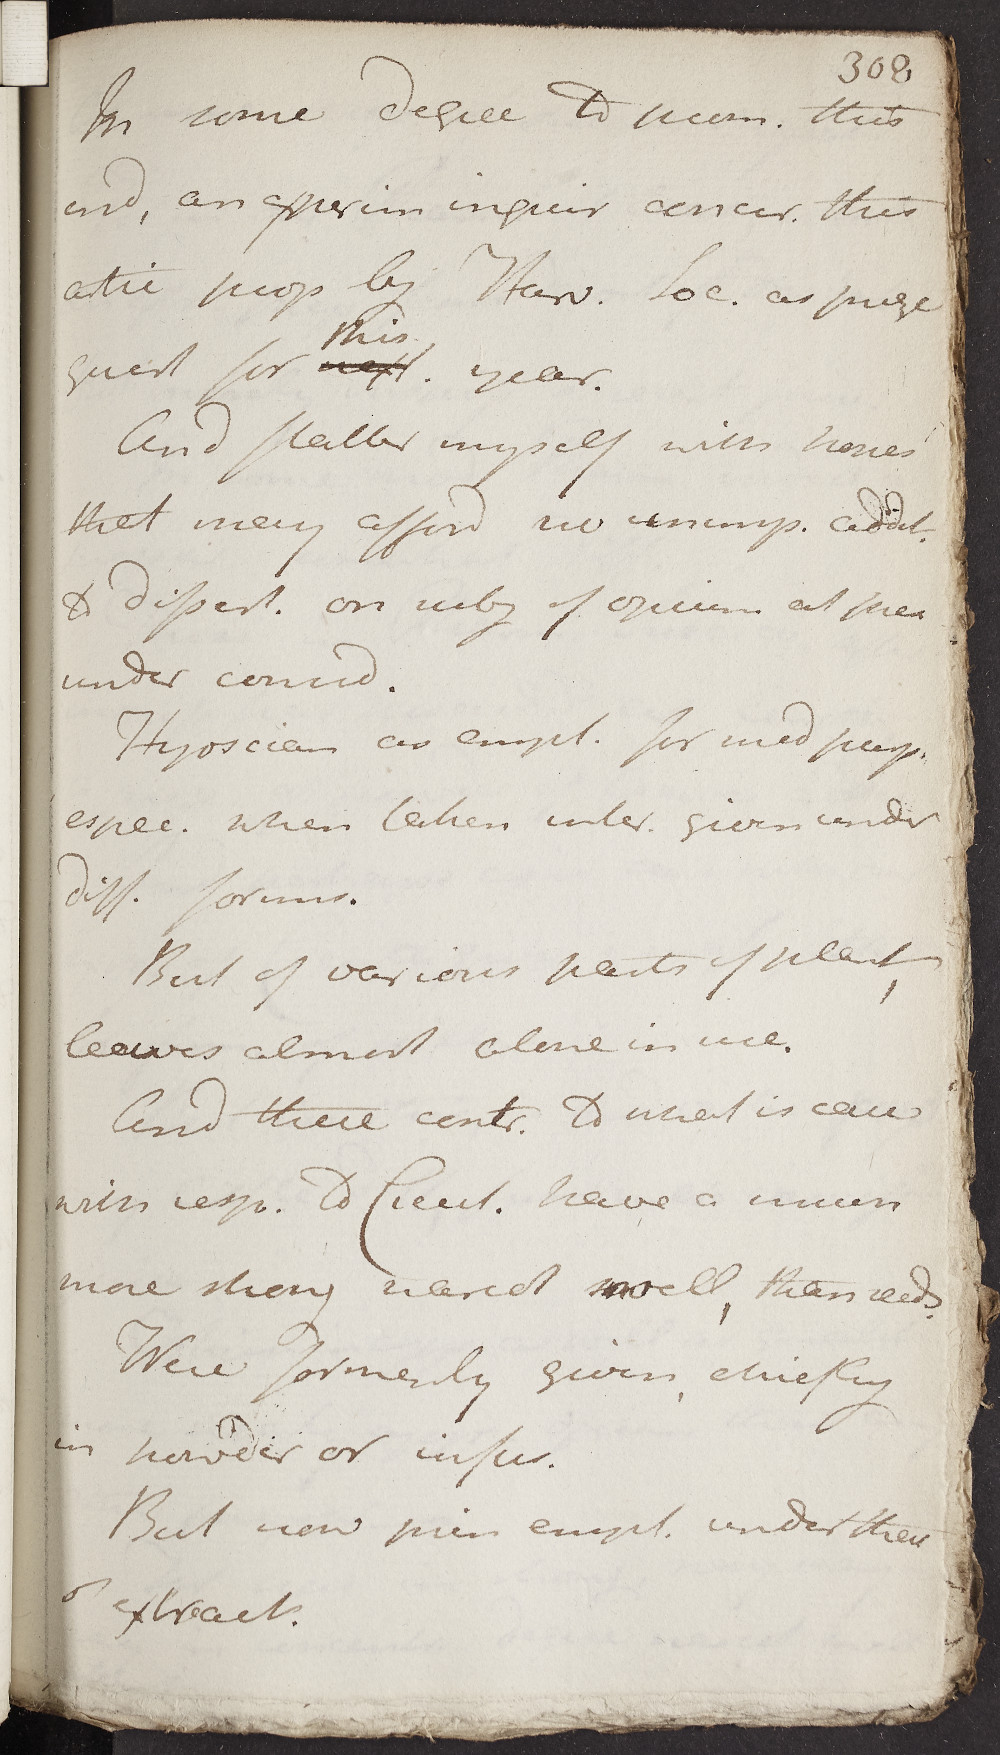 308
In some degree to prom. this
end, an experim inquir concer. this
artic prop by Harv. Soc. as prize
quest for this next. year.
And flatter myself with hopes
that may afford no unimp. addit.
to dissert. on subj of opium at pres
under consid.
Hyosciam as empl. for med purp.
espec. when taken inter. given under
diff. forms.
But of various parts of plant,
leaves almost alone in use.
And these contr. to what is case
with resp. to Cicut. have a much
more strong narcot smell, than seeds.
Were formerly given, chiefly
in powder or infus.
But now prin empl. under that
of extract.